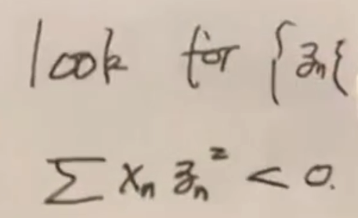 look for {z_n}
∑ x_n z_n^2 < 0.